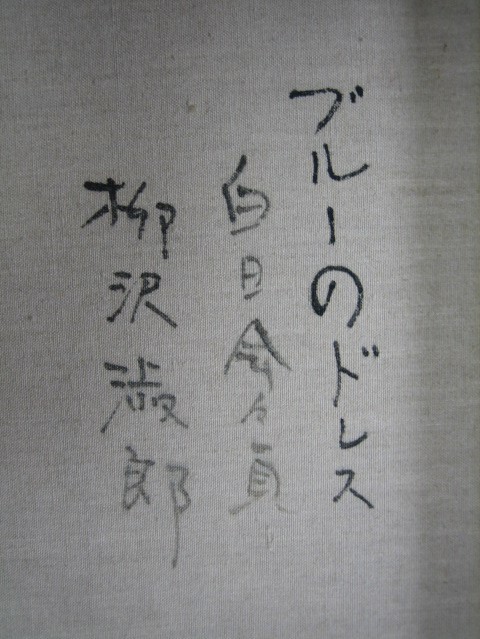 ブルーのドレス
白日会々員
柳沢淑郎